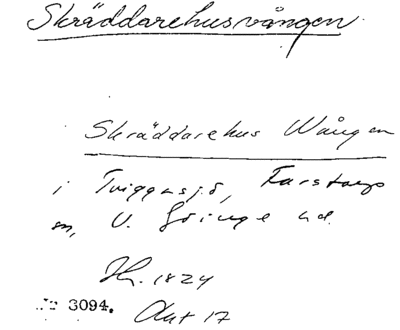 Skräddarehusvången
Skräddarehus Wången
i Tviggasjö, Farstorps
sn, V. Göinge hd.
Hr. 1824
3094. Akt 17